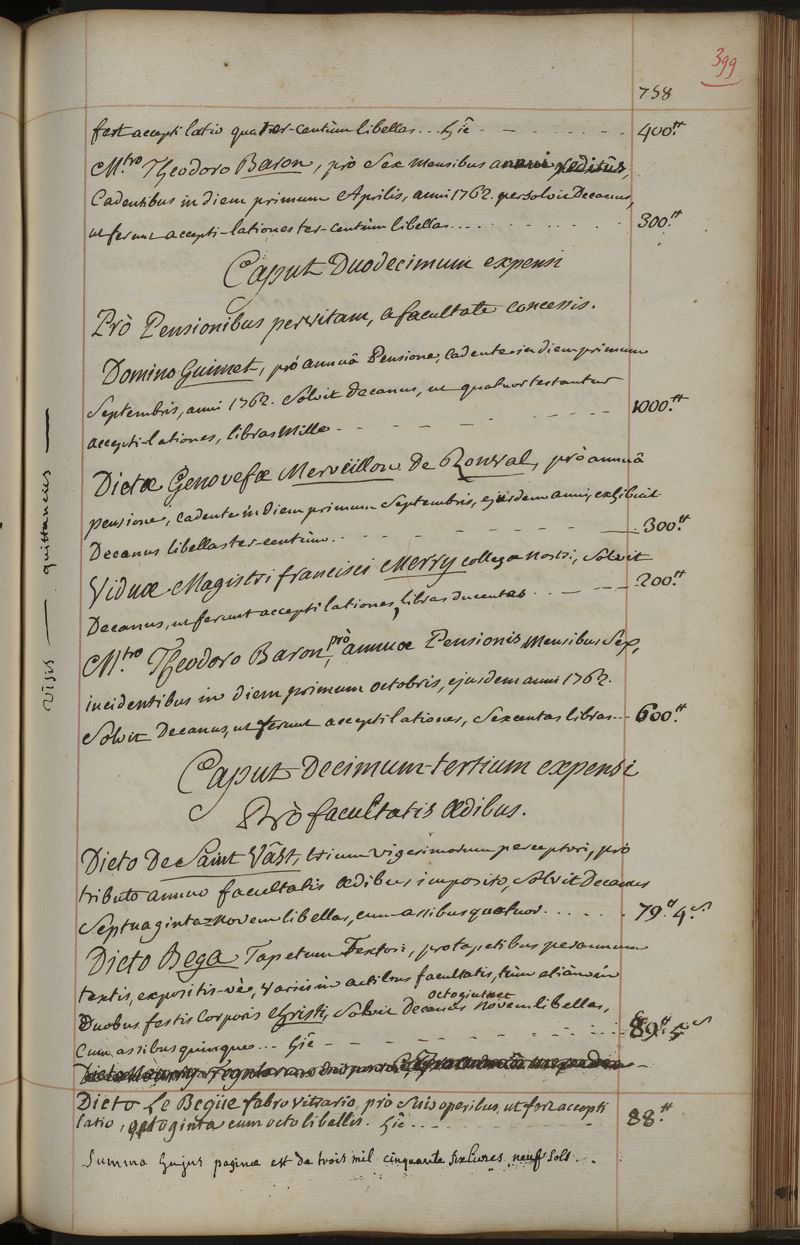 399
758
fert accepti latio quater-centùm libellas... hîc - - - 400.tt
M.tro Theodoro Baron, prò Sex mensibus annui reditûs,
Cadentibus in diem primum Aprilis, anni 1762. persolvit Decanus,
ut ferunt accepti-lationes ter-centùm libellas... 300.tt
Caput Duodecimum expensi
Prò Pensionibus per vitam, a facultate concessis.
Domino Guimet, prò annuâ Pensione, cadente in diem primum
Septembris, anni 1762. Solvit Decanus, ut quatuor testantur
accepti-lationes, libras Mille - - - - - - 1000.tt
Dictæ Genovefæ Merveillon de Ronval, prò annuâ
pensione, cadente in diem primum Septembris, ejusdem anni, exhibuit
Decanus libellas ter-centùm. - - - - - - 300.tt
Viduæ Magistri francisci Merry collegæ nostri, Solvit
Decanus, ut ferunt accepti lationes, libras ducentas . . - - - 200.tt
M.tro Theodoro Baron, prò annuæ Pensionis mensibus Sex,
incidentibus in diem primum octobris, ejusdem anni 1762.
Solvit Decanus, ut ferunt accepti lationes, Sexcentas libras... 600.tt
Visis — quittanciis —
Caput Decimum-tertium expensi
Prò facultatis Ædibus.
Dicto De Saint Vâst, trium vigesimorum perceptori, prò
tributo annuo facultatis Ædibus imposito, Solvit Decanus
Septuaginta-novem libellas, cum assibus quatuor. . . . . . 79.tt 4.s
Dicto Bega Tapetum Textori, pro tapetibus per annum
textis, expositis-vè, variis in actibus facultatis, tùm etiàm in
Duobus festis Corporis Christi, Solvit Decanus octoginta et novem libellas,
Cum assibus quinque... hîc - - - - - - 89.tt 5.s
Dicto Le Begüe fabro vitrario, prò Suis operibus, ut fert accepti
latio, octoginta cum octo libellis. hîc - - - 88.tt
Summa hujus paginæ est de trois mil cinquante six livres neuf sols...